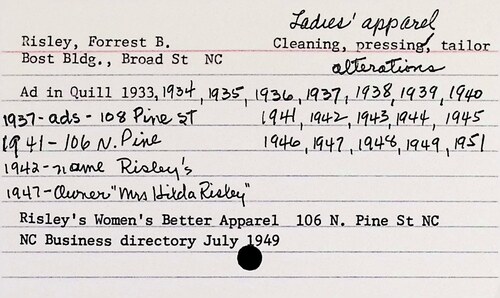 Ladies' apparel
Risley, Forrest B. Cleaning, pressing, tailor
Bost Bldg., Broad St NC alterations
Ad in Quill 1933, 1934, 1935, 1936, 1937, 1938, 1939, 1940
1937-ads-108 Pine St 1941, 1942, 1943, 1944, 1945
1941-106 N. Pine 1946, 1947, 1948, 1949, 1951
1942-name Risley's
1947-Owner "Mrs Hilda Risley"
Risley's Women's Better Apparel 106 N. Pine St NC
NC Business directory July 1949